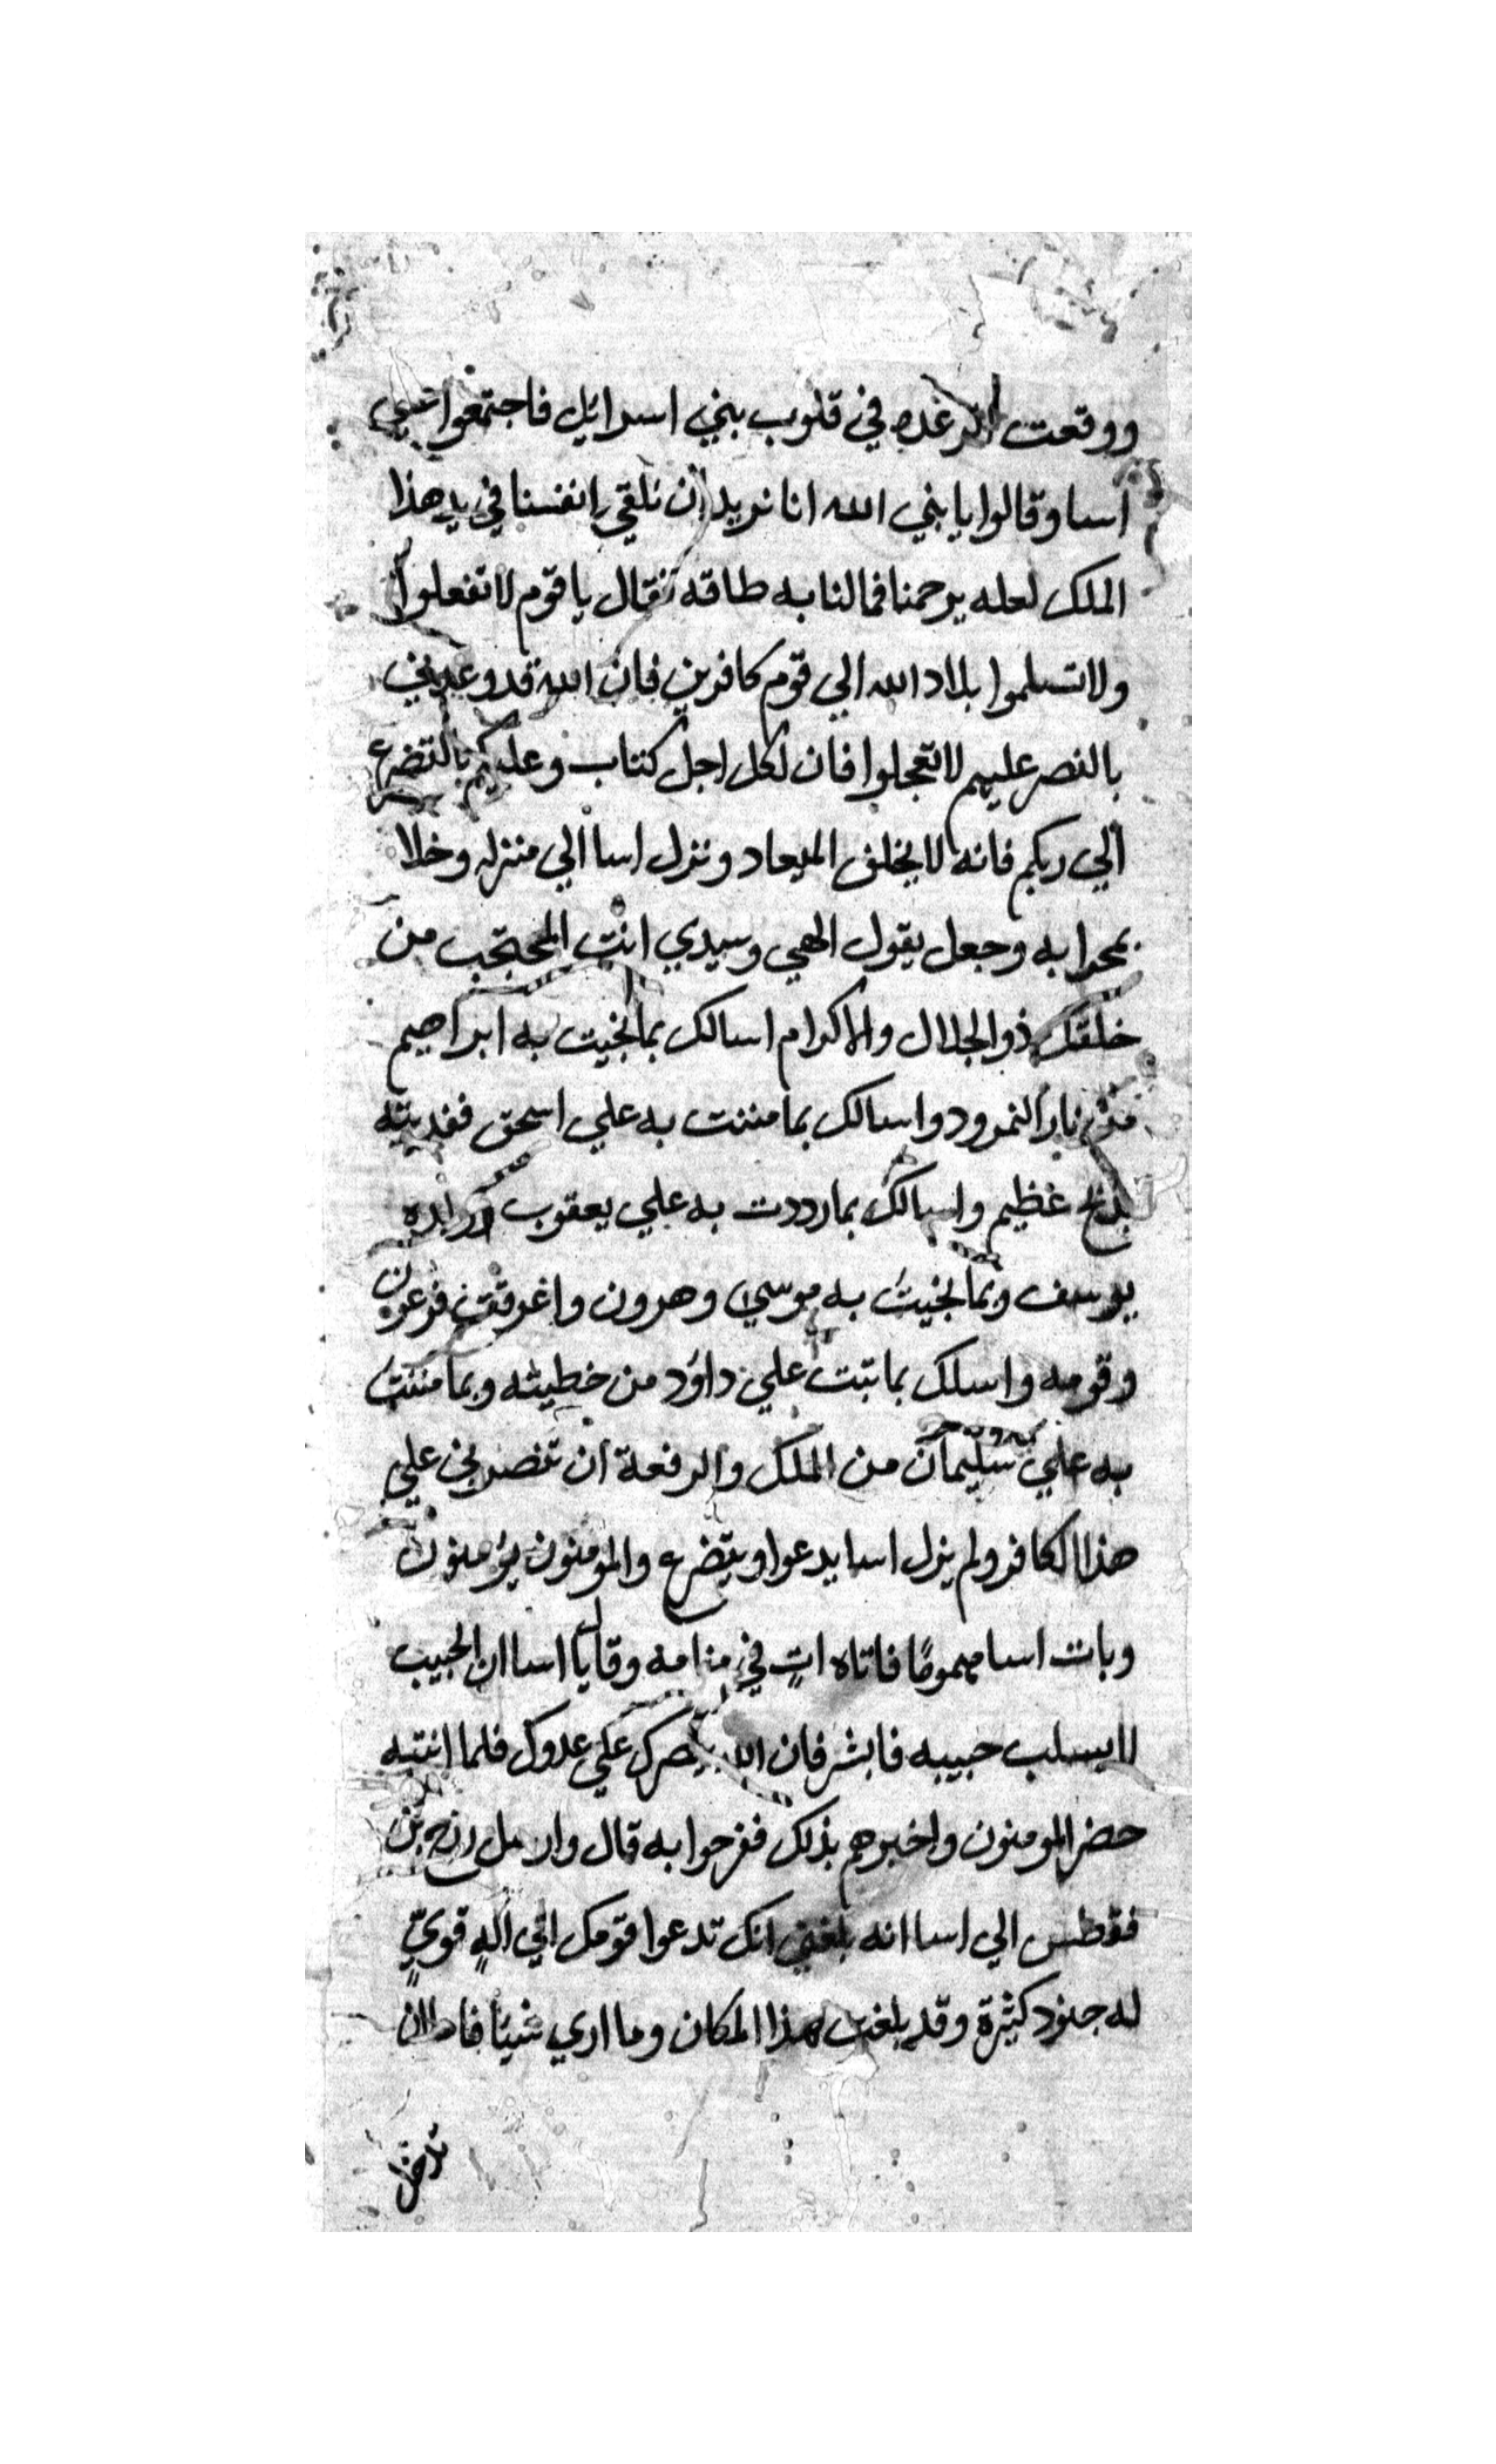 ووقعت الرعده في قلوب بني اسرايل فاجتمعوا علي
اسا وقالوا يا بني الله انا نريد ان نلقي بانفسنا في يد هذا
الملك لعله يرحمنا فما لنا به طاقه فقال يا قوم لا تفعلوا
ولا تسلموا بلاد الله الي قوم كافرين فان الله قد وعدني
بالنصر عليهم لا تعجلوا فان لكل اجل كتاب وعليكم بالتضرع
الي ربكم فانه لا يخلف الميعاد ونزل اسا الي منزله وخلا
بمحرابه وجعل يقول الهي وسيدي انت المحتجب من
خلقك ذو الجلال والاكرام اسالك بما نجيت به ابراهيم
من نار النمرود واسالك بما مننت به علي اسحق ففديته
بذبح عظيم واسالك بما رددت به علي يعقوب ولده
يوسف وبما نجيت به موسي وهرون واغرقت فرعون
وقومه واسلك بما تبت علي داؤد من خطيئته وبما مننت
به علي سليمان من الملك والرفعة ان تنصرني علي
هذا الكافر ولم يزل اسا يدعوا ويتضرع والمؤمنون يؤمنون
وبات اسا مهمومًا فاتاه اتٍ في منامه وقال يا اسا ان الحبيب
لا يسلب حبيبه فابشر فان الله ينصرك علي عدوك فلما انتبه
حضر المومنون واخبرهم بذلك ففرحوا به قال وارسل زرح بن
فقطس الي اسا انه بلغني انك تدعوا قومك الي الهٍ قويٍّ
له جنود كثيرة وقد بلغت لهذا المكان وما اري شيئا فاما ان
تاخذ